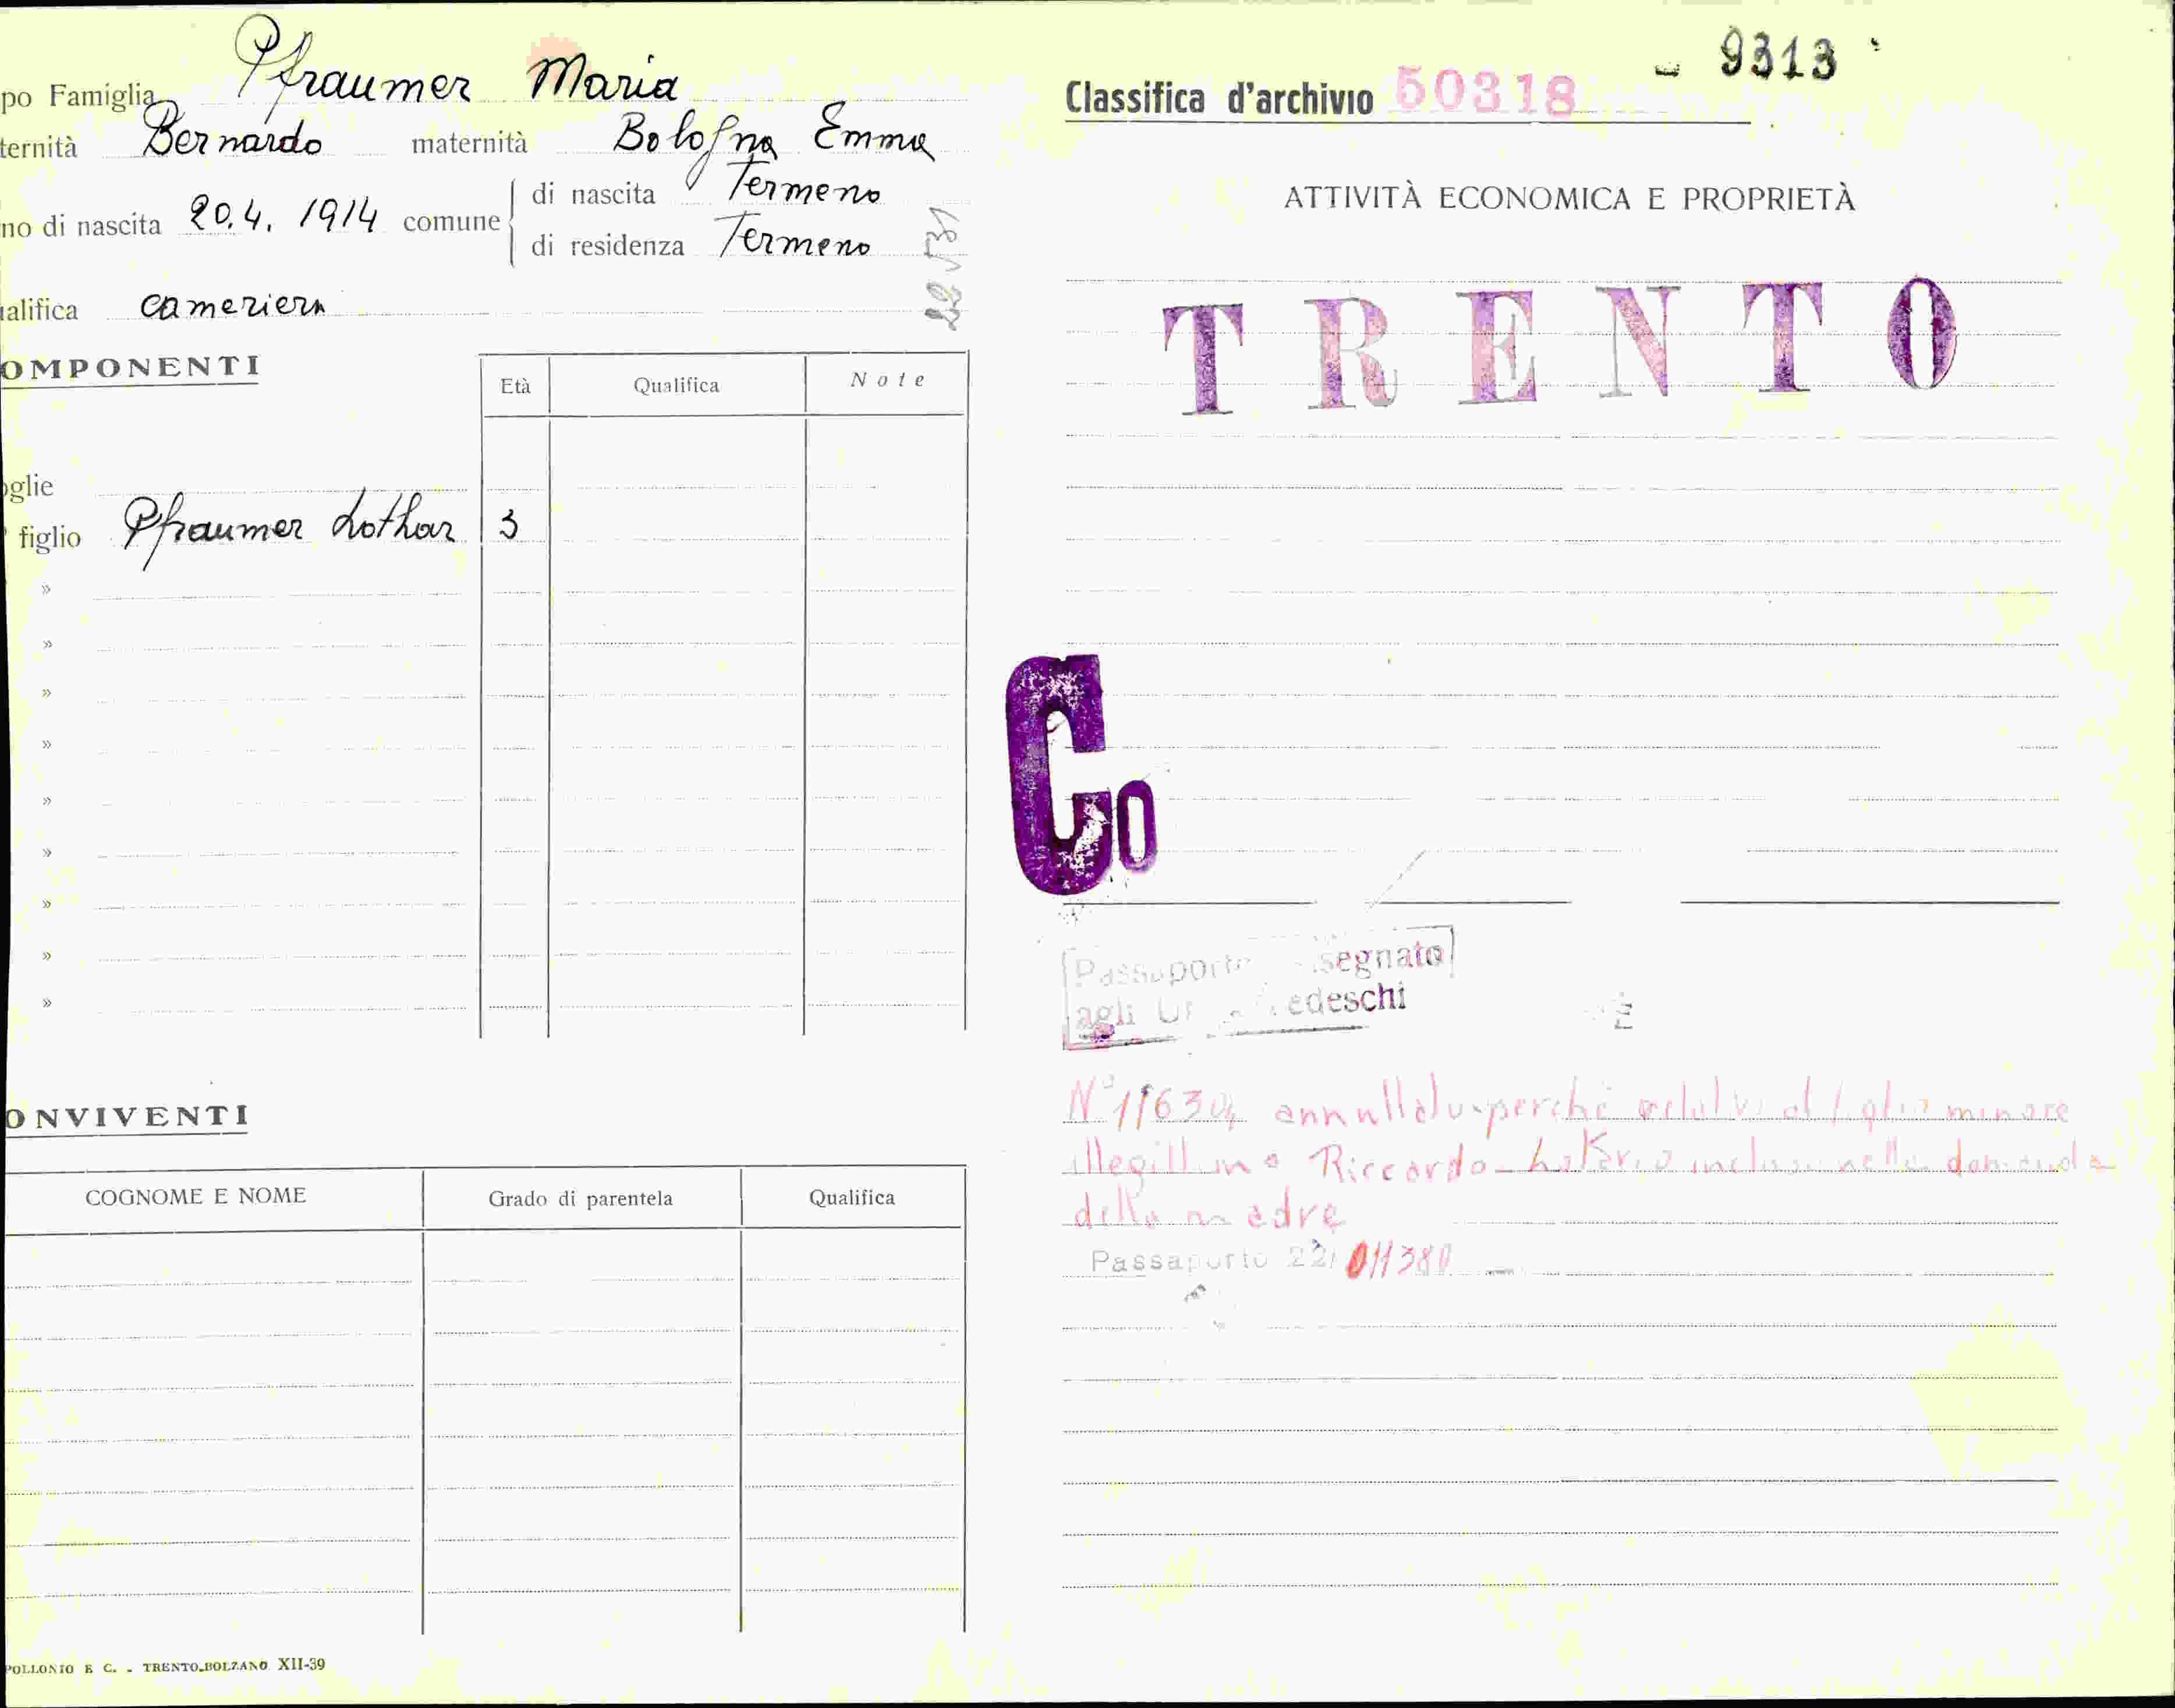 po Famiglia Pfraumer Maria
ternità Bernardo maternità Bologna Emma
no di nascita 20.4. 1914 comune di nascita Termeno
di residenza Termeno
alifica cameriera
OMPONENTI
Età Qualifica Note
oglie
figlio Pfraumer Lothar 3
»
»
»
»
»
»
»
»
»
ONVIVENTI
COGNOME E NOME Grado di parentela Qualifica
POLLONIO E C. - TRENTO-BOLZANO XII-39
Classifica d'archivio 50318 - 9313
ATTIVITÀ ECONOMICA E PROPRIETÀ
TRENTO
Co
Passaporto segnato
agli edeschi
N° 11630 perchè minore
Riccardo nella domanda
della madre
Passaporto 011380